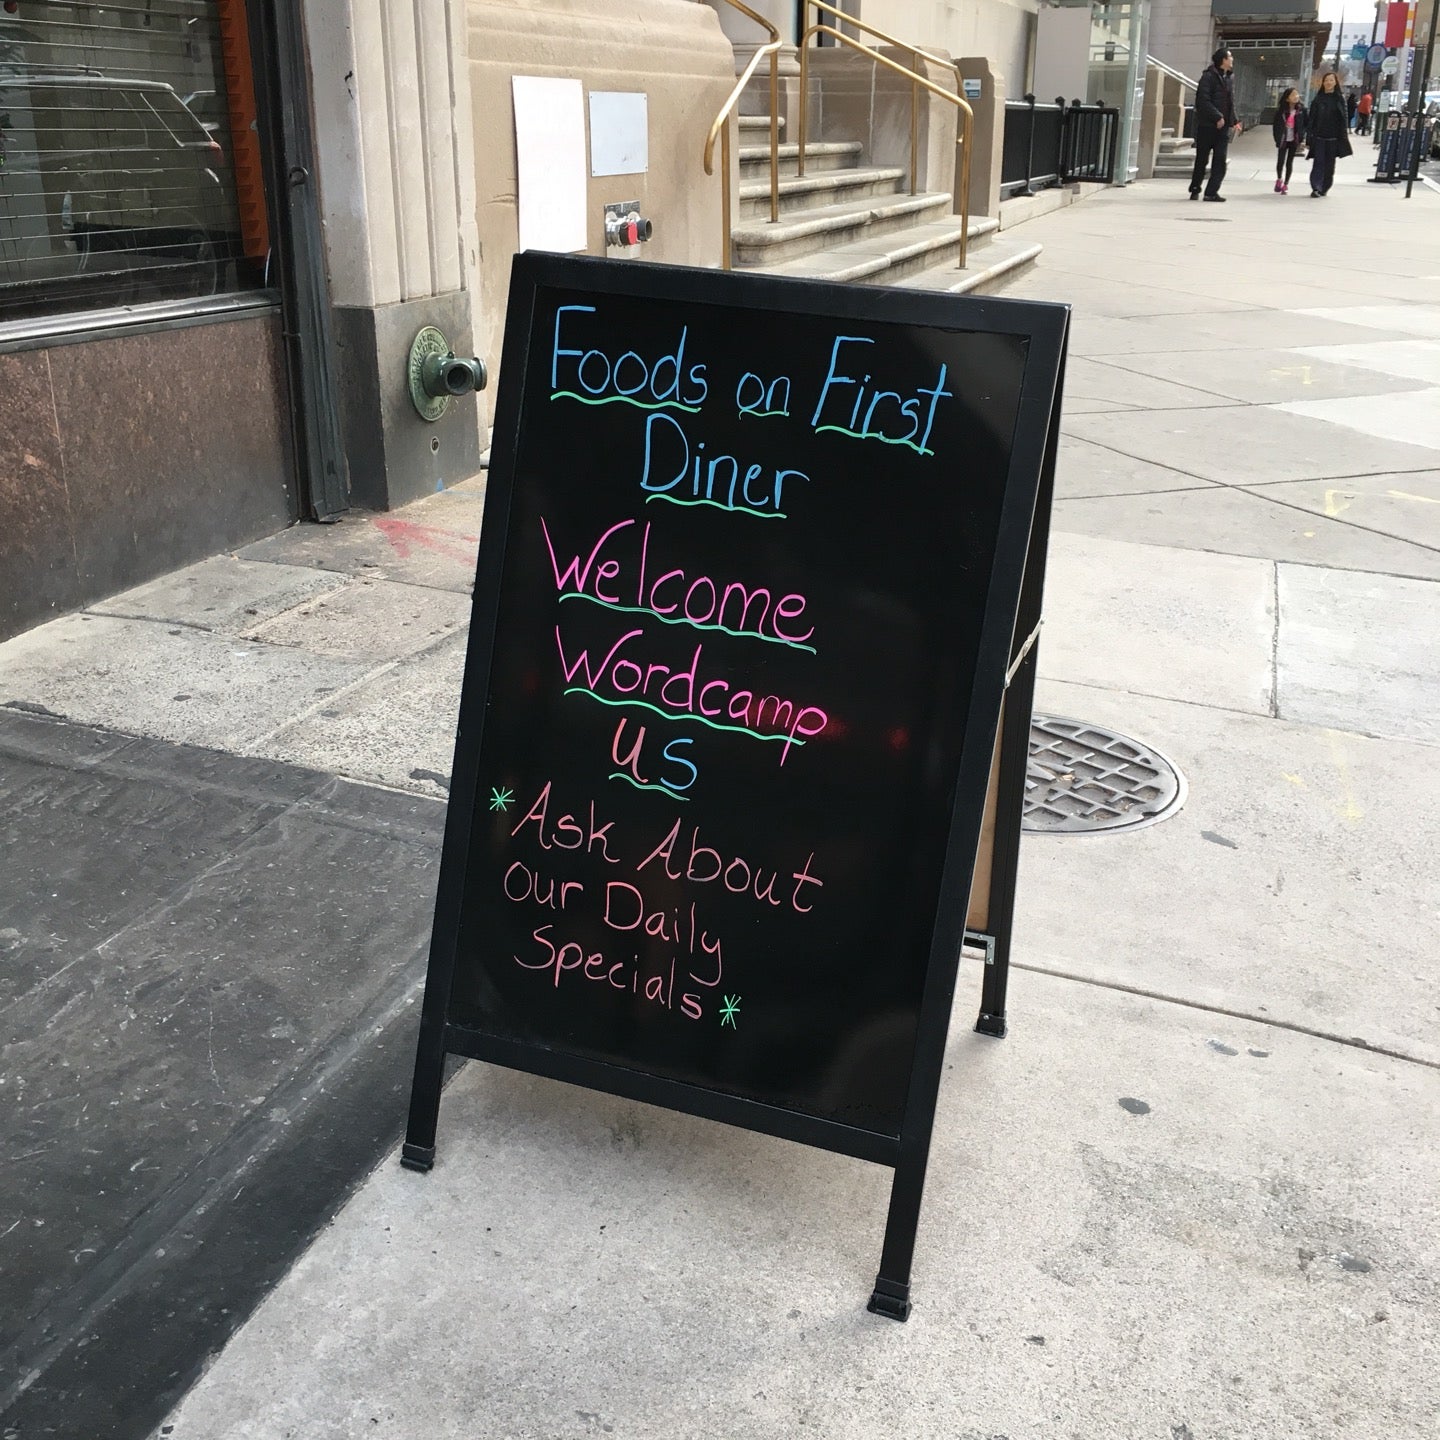 Foods on First
Diner
Welcome
Wordcamp
US
*Ask About
Our Daily
Specials*